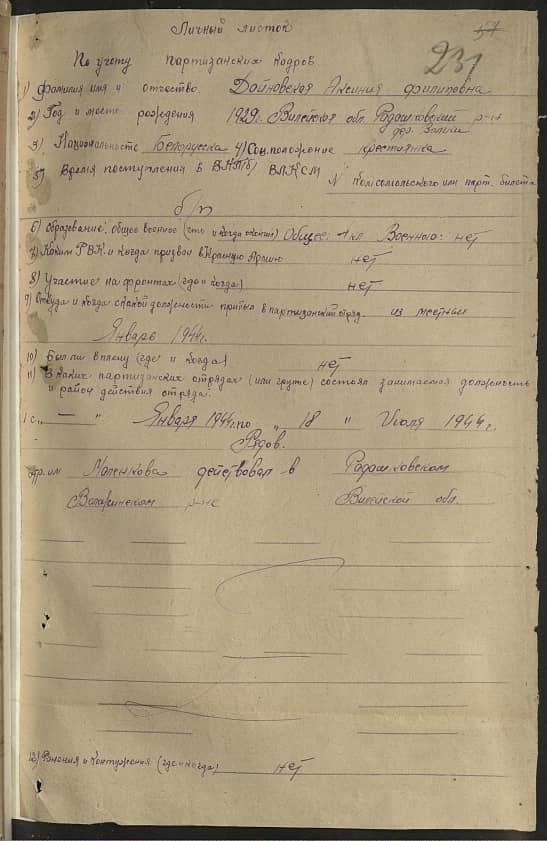 Личный листок
57
231
По учету партизанских кадров
1) Фамилия имя и отчество. Дойновская Аксиния Филиповна
2) Год и место рождения 1929г. Вилейская обл. Радошковский р-н
дер.
3) Национальность Белорусска 4) Соц. положение крестиянка
5) Время поступления в ВКП/б/ ВЛКСМ
N комсомольского или парт. билета
б/п
6) Образование: общее военное (что и когда окончил) Общее: 4 кл Военного: нет
7) Каким РВК и когда призван в Красную Армию нет
8) Участие на фронтах (где и когда) нет
9) Откуда и когда с какой должности прибыл в партизанский отряд. из местных
Январь 1944г.
10) Был ли в плену (где и когда) нет
11) В каких партизанских отрядах (или групе) состоял занимаемая должность
и район действия отряда:
с „ — " Января 1944г. по „ 18 " Июля 1944г.
Рядов.
им Маленкова действовал в Радошковском
Воложинском р-не Вилейской обл.
12) Ранения и контужения (где и когда) нет